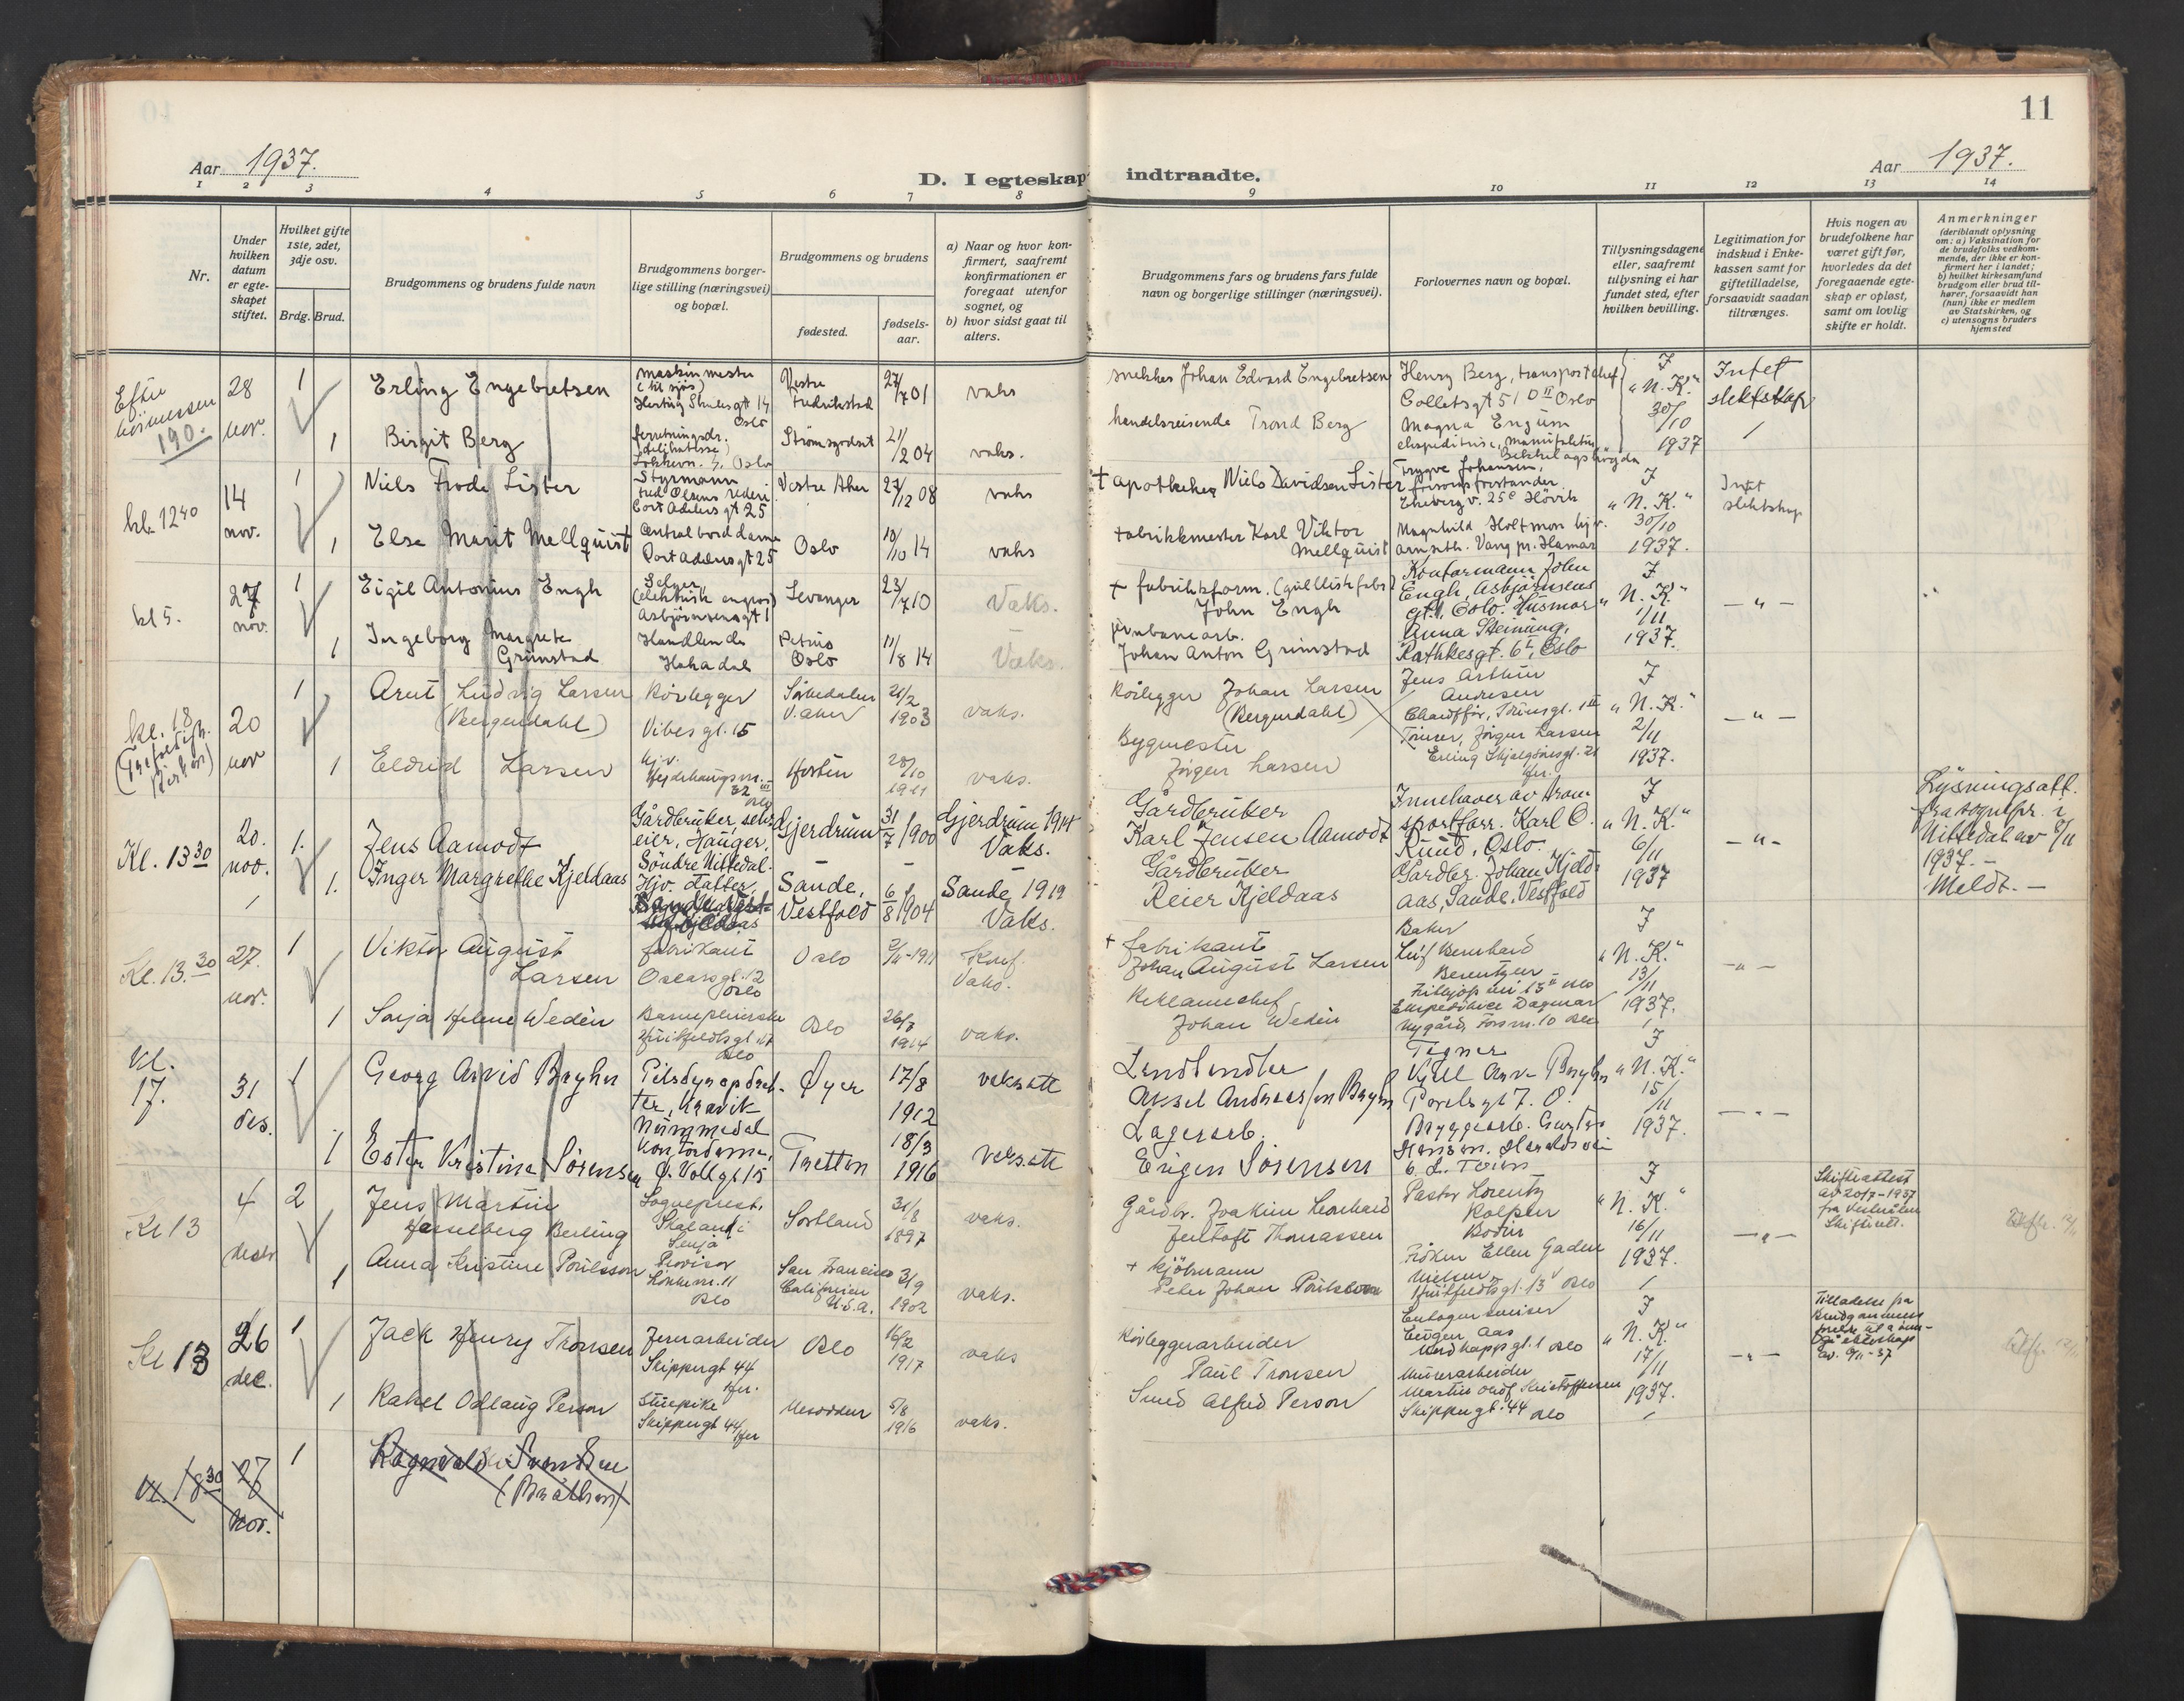 11
Aar 1937.
D. I egteskap indtraadte.
Aar 1937.
1 2 3 4 5 6 7 8 9 10 11 12 13 14
Nr.
Under hvilken datum er egte-skapet stiftet.
Hvilket gifte 1ste, 2det, 3dje osv.
Brdg. Brud.
Brudgommens og brudens fulde navn
Brudgommens borger-lige stilling (næringsvei) og bopæl.
Brudgommens og brudens
fødested.
fødsels-aar.
a) Naar og hvor kon-firmert, saafremt konfirmationen er foregaat utenfor sognet, og
b) hvor sidst gaat til alters.
Brudgommens fars og brudens fars fulde navn og borgerlige stillinger (næringsvei).
Forlovernes navn og bopæl.
Tillysningsdagene eller, saafremt tillysning ei har fundet sted, efter hvilken bevilling.
Legitimation for indskud i Enke-kassen samt for giftetilladelse, forsaavidt saadan tiltrænges.
Hvis nogen av brudefolkene har været gift før, hvorledes da det foregaaende egte-skap er opløst, samt om lovlig skifte er holdt.
Anmerkninger
(deriblandt oplysning om: a) Vaksination for de brudefolks vedkom-mende, der ikke er kon-firmert her i landet; b) hvilket kirkesamfund brudgom eller brud til-hører, forsaavidt han (hun) ikke er medlem av Statskirken, og c) utensogns bruders hjemsted
Efter høimessen 190.
28 nov.
1
Erling Engebretsen
maskinmester (til sjøs)
14 Oslo
Vestre Fredrikstad
27/7 01
vaks
snekker Johan Edvard Engebretsen
Henry Berg, transportchef
Colletsgt 51 0 II Oslo
I "N.K." 30/10 1937
Intet slektskap
1
Birgit Berg
Oslo
Strømsgodset
21/2 04
vaks.
handelsreisende Trond Berg
Magna Engum
kl. 12 40
14 nov.
1
Niels Frode Lister
Styrmann
Fred Olsens rederi
Cort Adelers gt 25
Vestre Aker
27/12 08
vaks
+ apotheker Niels Davidsen Lister
Trygve Johansen,
Høvik
I "N.K." 30/10 1937.
Intet slektskap
1
Else Marit Mellquist
Centralborddame
Cort Adelersgt 25
Oslo
10/10 14
vaks
+ fabrikkmester Karl Viktor Mellquist
Magnhild Holtmon hjv.
Vang pr. Hamar
kl 5.
27 nov.
1
Eigil Antonius Engh
Selger (elektrisk engros)
Asbjørnsensgt 1
Levanger
23/7 10
Vaks.
John Engh
Kontormann John Engh, Asbjørnsens gt. 1, Oslo.
I "N.K." 1/11 1937.
— " —
1
Ingeborg Margrete Grimstad
Petrus Oslo
11/8 14
Vaks.
jernbanearb. Johan Anton Grimstad
Rathkesgt. 6, Oslo
kl. 18
20 nov
1
Arnt Ludvig Larsen (Bergerdahl)
Rörlegger
Vibesgt. 15
Sørkedalen V. Aker
21/2 1903
vaks.
Rörlegger Johan Larsen (Bergerdahl)
Jens Arthur Andresen
I "N.K." 2/11 1937.
— " —
1
Eldrid Larsen
Horten
28/10 1911
vaks.
Bygmester Jørgen Larsen
Kl. 13 30
20. nov.
1.
Jens Aamodt
Gårdbruker, selv-eier, Hauger, Söndre Nittedal.
Gjerdrum
31/7 1900
Gjerdrum 1914 Vaks.
Gårdbruker Karl Jensen Aamodt
Innehaver av
Karl O. Ruud, Oslo.
I "N.K." 6/11 1937
— " —
Lysningsatt. fra sognepr. i Nittedal av 8/11 1937. — Meldt. —
1.
Inger Margrethe Kjeldaas
Hjv. datter,
Sande, Vestfold
6/8 1904
Sande 1919 Vaks.
Gårdbruker Reier Kjeldaas
Gardbr. Johan Kjeld-aas, Sande, Vestfold
Kl. 13. 30
27. nov.
1
Viktor August Larsen
Fabrikant
Oscarsgt. 12 Oslo
Oslo
Konf. Vaks.
+ fabrikant Johan August Larsen
Baker Leif Bernhard Berentzen
I "N.K." 13/11 1937.
— " —
1
Sonja Helene Wedén
Barnepleierske
Oslo
Oslo
1914
vaks.
Reklamechef Johan Wedén
Dagmar Nygård
Kl. 17.
31 des.
1
Georg Arvid Bryhn
Pelsdyropdret-ter, Kravik Nummedal
Øyer
17/8 1912
vaks. att
Aksel Andreassen Bryhn
Tegner
I "N.K." 15/11 1937.
— " —
1
Ester Kristine Sörensen
Kontordame,
Ø. Vollgt 15
Tretten
18/3 1916
vaks. att
Lagerarb. Eugen Sörensen
Kl 13
4 desbr
2
Jens Martin Hasselberg Berling
Sogneprest, Skaland i Senja
Sortland
31/8 1897
vaks.
Gårdbr. Joakim Leonhard Jentoft Thomassen
Pastor Lorentz Kolpen Bodin
I "N.K." 16/11 1937.
— " —
Skifteattest av 20/7-1937 fra Vesterålen Skifterett.
1
Anna Kristine Poulsson
Provisor
Løkkevn. 11 Oslo
San Francisco Californien U.S.A.
3/9 1902
vaks.
+ kjöbmann Peter Johan Poulsson
Fröken Ellen Gade
Huitfeldtsgt. 13 Oslo
Kl 13
26 dec.
1
Jack Henry Tronsen
Jernarbeider
Skippergt 44
Oslo
16/2 1917
vaks
Rörleggerarbeider Paul Tronsen
Eugen Aas
Oslo
I "N.K." 17/11 1937.
— " —
Tilladelse fra Brudgommens foreldre til å inn-gå ekteskap av. 9/11-37
1
Rakel Odlaug Person
Stuepike
Skippergt 44
Nesodden
5/8 1916
vaks.
Smed Alfred Person
Murerarbeider Martin Olaf Kristoffersen
Skippergt. 44 Oslo
Kl. 18 30
27 Nov.
1
Ragnvald Svendsen (Bråthen)